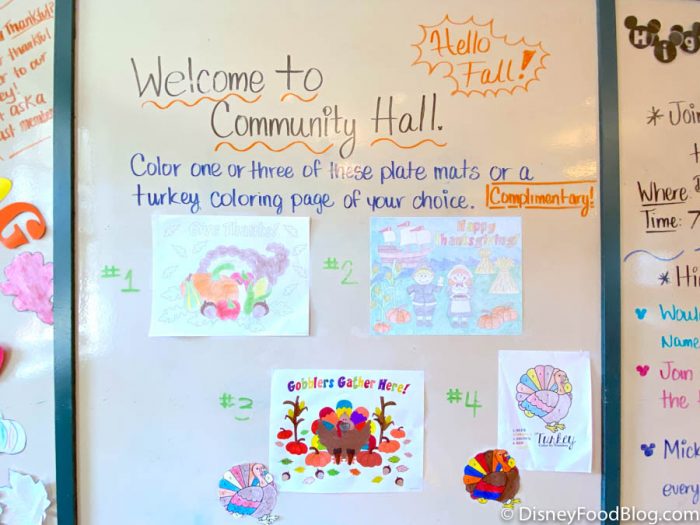 Thankful?
thankful
or to our
ey!
t ask a
ast member
G
Hello
Fall!
Welcome to
Community Hall.
Color one or three of these plate mats or a
turkey coloring page of your choice. Complimentary!
#1
Give Thanks!
#2
Happy
Thanksgiving!
#3
Gobblers Gather Here!
#4
Turkey
Color by Number
Hig
* Join
Where:
Time: 7
* Hi
Woul
Name
Join
the
Mick
every
©DisneyFoodBlog.com